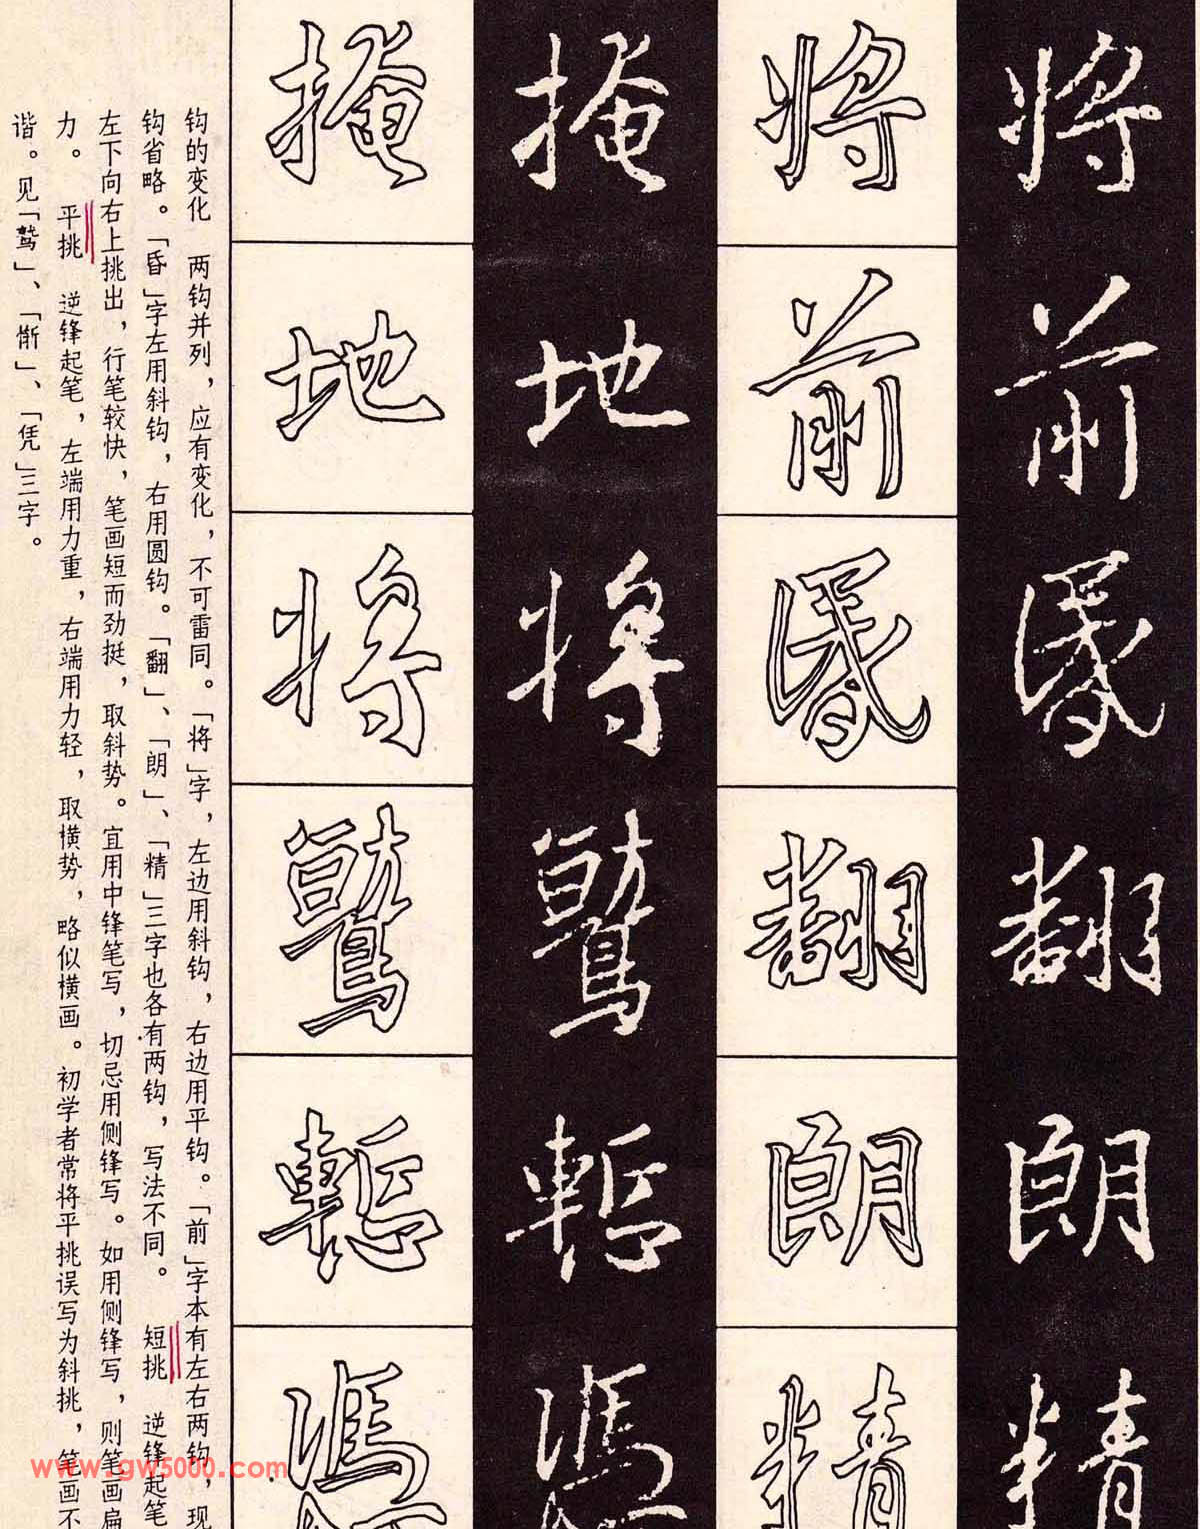 将
前
昏
翻
朗
精
将
前
昏
翻
朗
精
掩
地
将
鷲
憑
掩
地
将
鷲
憑
钩的变化　两钩并列，应有变化，不可雷同。「将」字，左边用斜钩，右边用平钩。「前」字本有左右两钩，现
钩省略。「昏」字左用斜钩，右用圆钩。「翻」、「朗」、「精」三字也各有两钩，写法不同。　短挑　逆锋起笔
左下向右上挑出，行笔较快，笔画短而劲挺，取斜势。宜用中锋笔写，切忌用侧锋写。如用侧锋写，则笔画扁
力。　平挑　逆锋起笔，左端用力重，右端用力轻，取横势，略似横画。初学者常将平挑误写为斜挑，笔画不
谐。见「鹫」、「」、「凭」三字。
www.gw5000.com